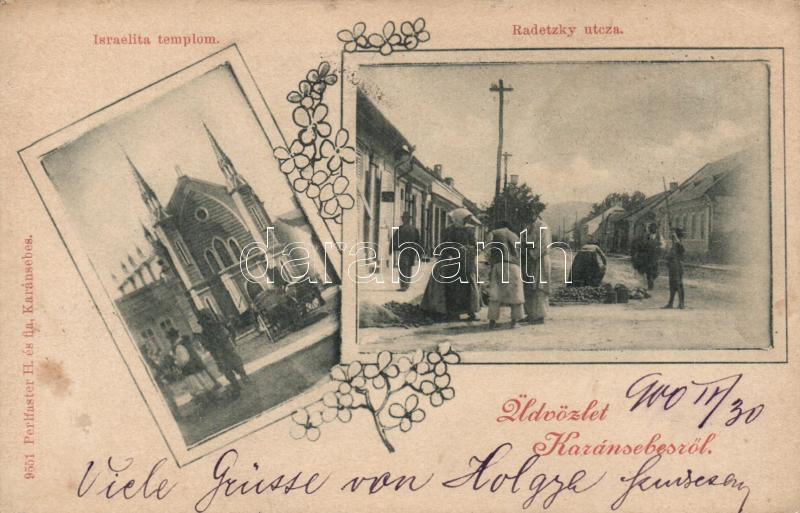 Israelita templom.
Radetzky utcza.
9551 Perlfaster H. és fia, Karánsebes.
darabanth
Üdvözlet
Karánsebesről.
900 IV/30
Viele Grüsse von Holgya